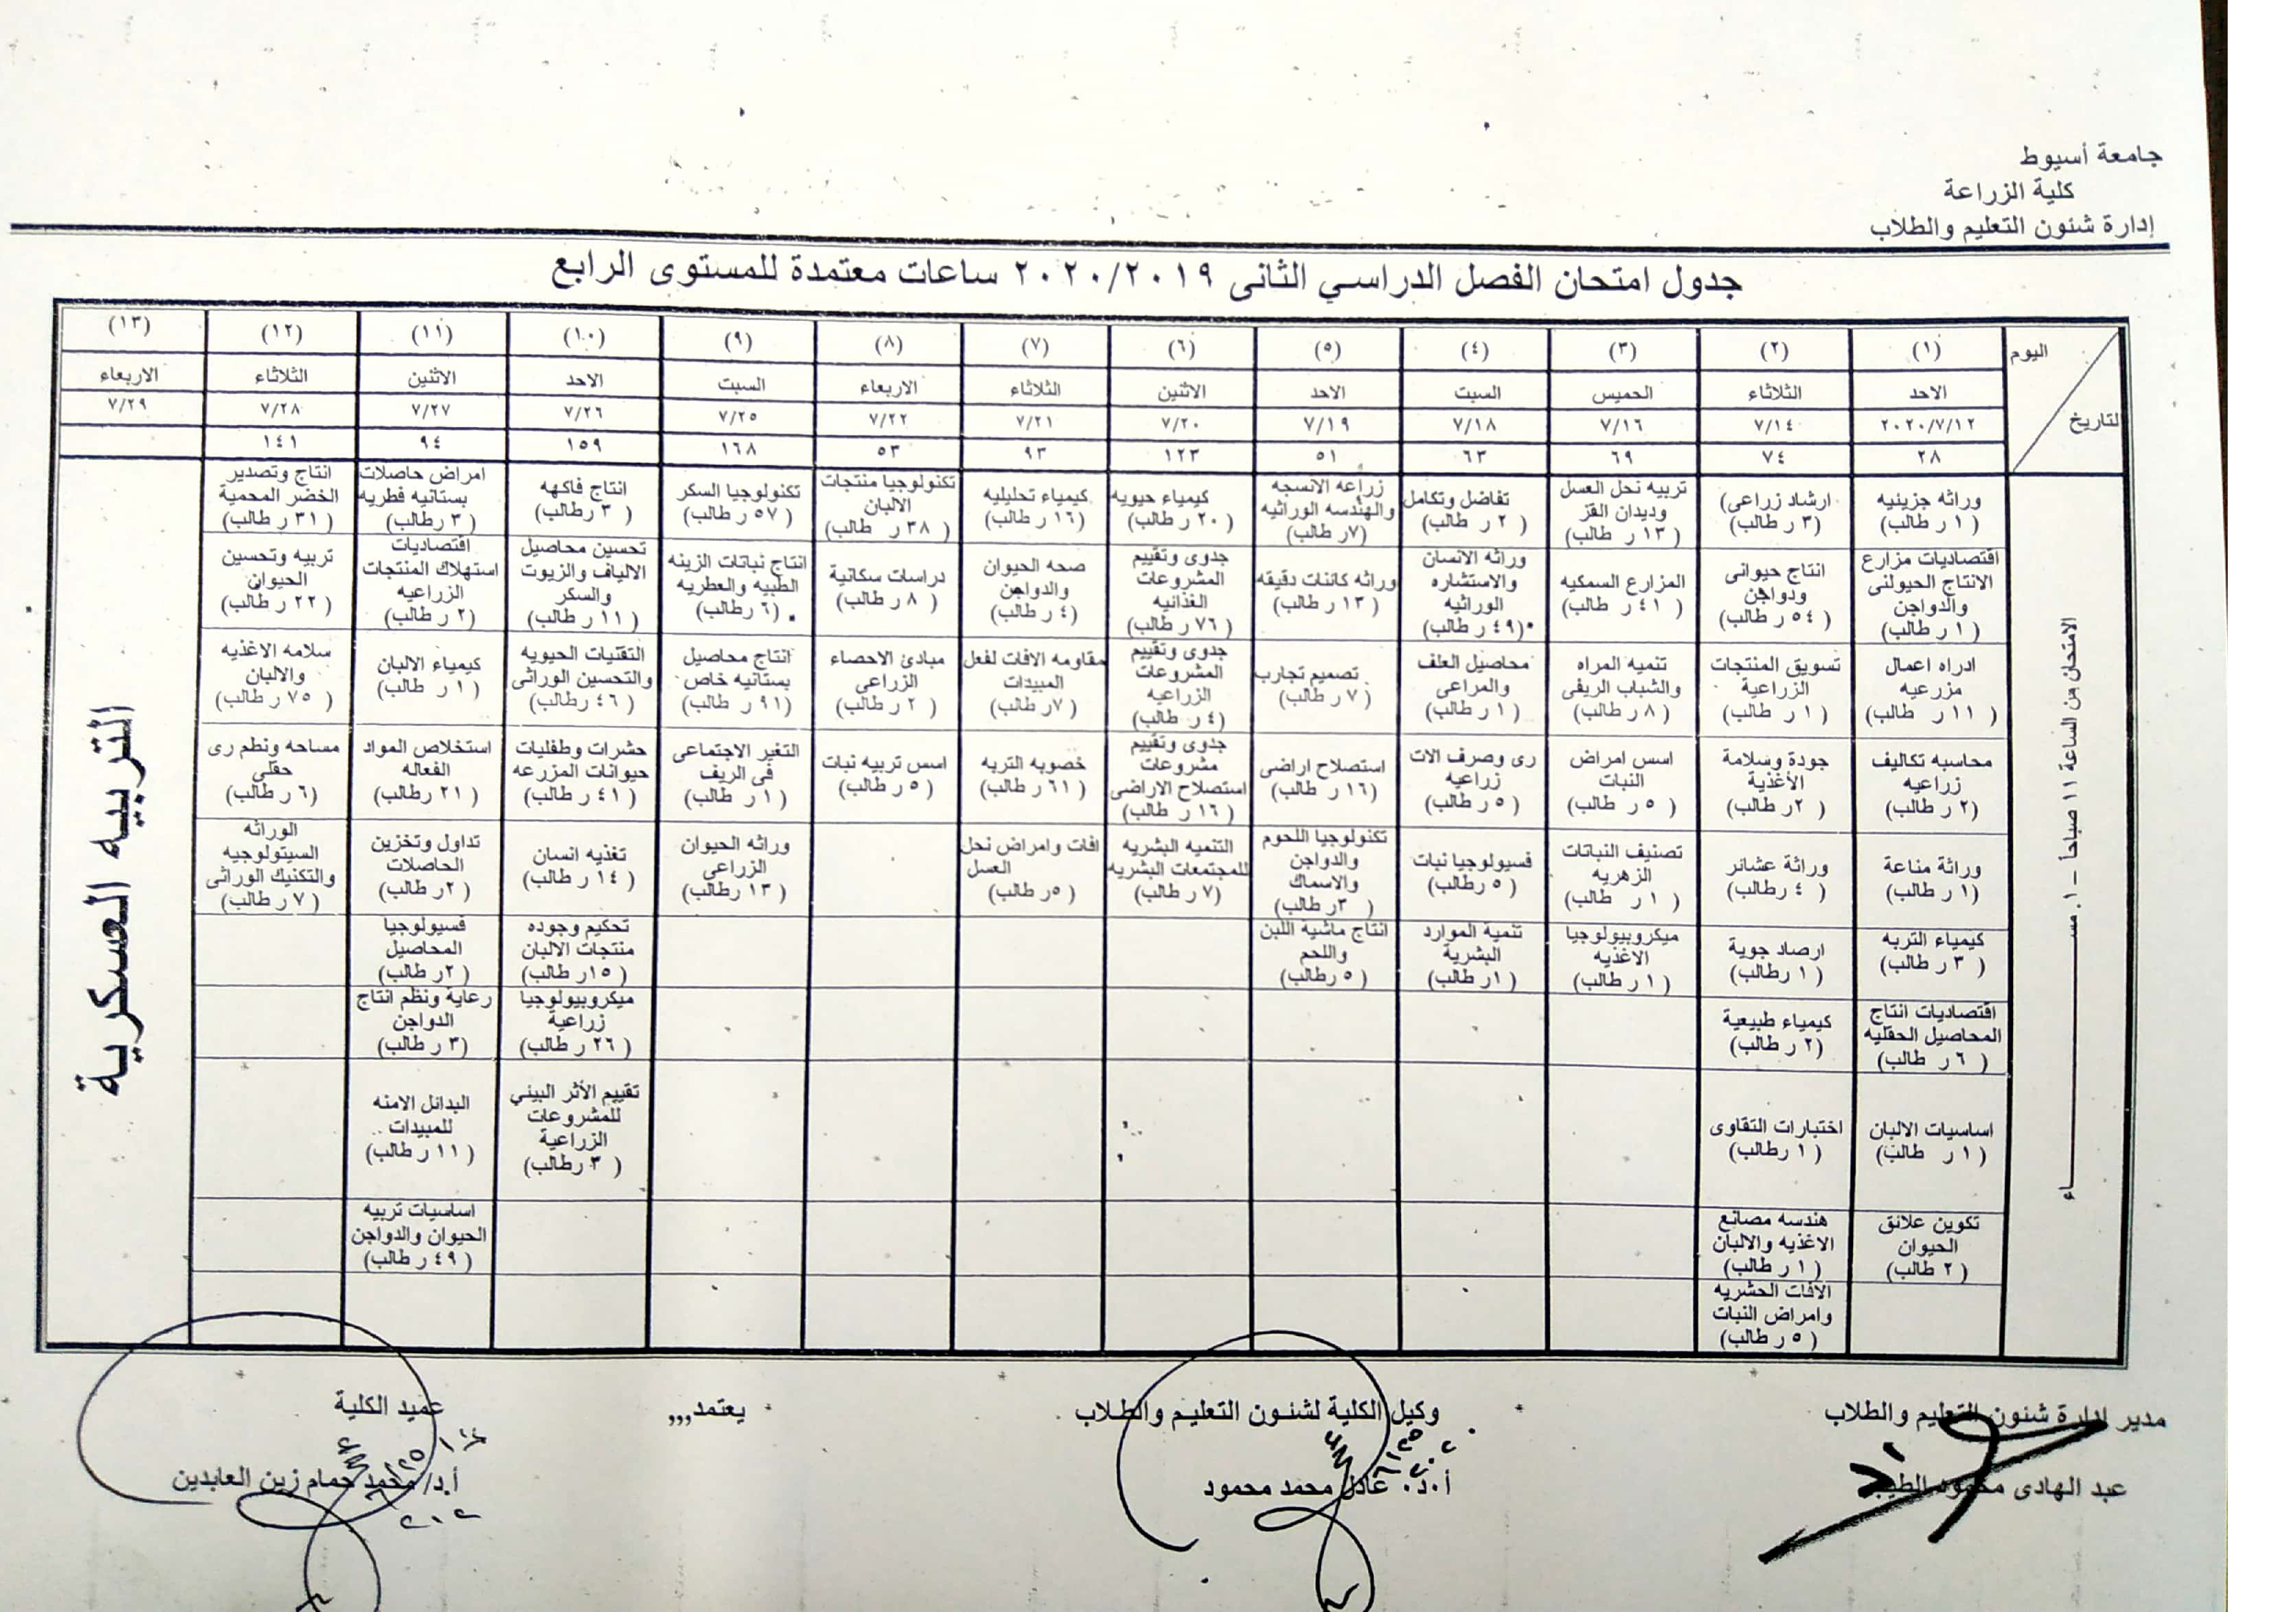 جامعة أسيوط
كلية الزراعة
إدارة شئون التعليم والطلاب
جدول امتحان الفصل الدراسي الثانى ٢٠٢٠/٢٠١٩ ساعات معتمدة للمستوى الرابع
اليوم
لتاريخ
(١) (٢) (٣) (٤) (٥) (٦) (٧) (٨) (٩) (١٠) (١١) (١٢) (١٣)
الاحد الثلاثاء الخميس السبت الاحد الاثنين الثلاثاء الاربعاء السبت الاحد الاثنين الثلاثاء الاربعاء
٢٠٢٠/٧/١٢ ٧/١٤ ٧/١٦ ٧/١٨ ٧/١٩ ٧/٢٠ ٧/٢١ ٧/٢٢ ٧/٢٥ ٧/٢٦ ٧/٢٧ ٧/٢٨ ٧/٢٩
٢٨ ٧٤ ٦٩ ٦٣ ٥١ ١٢٣ ٩٣ ٥٣ ١٦٨ ١٥٩ ٩٤ ١٤١
الامتحان من الساعة ١١ صباحاً – ١. مســـاء
وراثه جزيئيه
(١ ر طالب)
اقتصاديات مزارع
الانتاج الحيوانى
والدواجن
(١ ر طالب)
ادراه اعمال
مزرعيه
(١١ ر طالب)
محاسبه تكاليف
زراعيه
(٢ ر طالب)
وراثة مناعة
(١ ر طالب)
كيمياء التربه
(٣ ر طالب)
اقتصاديات انتاج
المحاصيل الحقليه
(٦ ر طالب)
اساسيات الالبان
(١ ر طالب)
تكوين علائق
الحيوان
(٢ طالب)
ارشاد زراعى)
(٣ ر طالب)
انتاج حيوانى
ودواجن
(٥٤ ر طالب)
تسويق المنتجات
الزراعية
(١ ر طالب)
جودة وسلامة
الأغذية
(٢ر طالب)
وراثة عشائر
(٤ رطالب)
ارصاد جوية
(١ رطالب)
كيمياء طبيعية
(٢ ر طالب)
اختبارات التقاوى
(١ رطالب)
هندسه مصانع
الاغذيه والالبان
(١ ر طالب)
الآفات الحشريه
وامراض النبات
(٥ ر طالب)
تربيه نحل العسل
وديدان القز
(١٣ ر طالب)
المزارع السمكيه
(٤١ ر طالب)
تنميه المراه
والشباب الريفى
(٨ ر طالب)
اسس امراض
النبات
(٥ ر طالب)
تصنيف النباتات
الزهريه
(١ ر طالب)
ميكروبيولوجيا
الاغذيه
(١ ر طالب)
تفاضل وتكامل
(٢ ر طالب)
وراثه الانسان
والاستشاره
الوراثيه
(٤٩ ر طالب)
محاصيل العلف
والمراعى
(١ ر طالب)
رى وصرف الات
زراعيه
(٥ ر طالب)
فسيولوجيا نبات
(٥ رطالب)
تنمية الموارد
البشرية
(١ر طالب)
زراعه الانسجه
والهندسه الوراثيه
(٧ر طالب)
وراثه كائنات دقيقه
(١٣ ر طالب)
تصميم تجارب
(٧ ر طالب)
استصلاح اراضى
(١٦ ر طالب)
تكنولوجيا اللحوم
والدواجن
والاسماك
(٣ر طالب)
انتاج ماشية اللبن
واللحم
(٥ رطالب)
كيمياء حيويه
(٢٠ ر طالب)
جدوى وتقييم
المشروعات
الغذائيه
(٧٦ ر طالب)
جدوى وتقييم
المشروعات
الزراعيه
(٤ ر طالب)
جدوى وتقييم
مشروعات
استصلاح الاراضى
(١٦ ر طالب)
التنميه البشريه
للمجتمعات البشريه
(٧ ر طالب)
كيمياء تحليليه
(١٦ ر طالب)
صحه الحيوان
والدواجن
(٤ ر طالب)
مقاومه الافات لفعل
المبيدات
(٧ر طالب)
خصوبه التربه
(٦١ ر طالب)
افات وامراض نحل
العسل
(٥ر طالب)
تكنولوجيا منتجات
الالبان
(٣٨ ر طالب)
دراسات سكانية
(٨ ر طالب)
مبادئ الاحصاء
الزراعى
(٢ ر طالب)
اسس تربيه نبات
(٥ ر طالب)
تكنولوجيا السكر
(٥٧ ر طالب)
انتاج نباتات الزينه
الطبيه والعطريه
(٦ رطالب)
انتاج محاصيل
بستانيه خاص
(٩١ ر طالب)
التغير الاجتماعى
فى الريف
(١ ر طالب)
وراثه الحيوان
الزراعى
(١٣ رطالب)
انتاج فاكهه
(٣ رطالب)
تحسين محاصيل
الالياف والزيوت
والسكر
(١١ ر طالب)
التقنيات الحيويه
والتحسين الوراثى
(٤٦ رطالب)
حشرات وطفليات
حيوانات المزرعه
(٤١ ر طالب)
تغذيه انسان
(١٤ ر طالب)
تحكيم وجوده
منتجات الالبان
(١٥ر طالب)
ميكروبيولوجيا
زراعية
(٢٦ ر طالب)
تقييم الأثر البيئي
للمشروعات
الزراعية
(٣ رطالب)
امراض حاصلات
بستانيه فطريه
(٣ رطالب)
اقتصاديات
استهلاك المنتجات
الزراعيه
(٢ ر طالب)
كيمياء الالبان
(١ ر طالب)
استخلاص المواد
الفعاله
(٢١ رطالب)
تداول وتخزين
الحاصلات
(٢ر طالب)
فسيولوجيا
المحاصيل
(٢ر طالب)
رعاية ونظم انتاج
الدواجن
(٣ ر طالب)
البدائل الامنه
للمبيدات
(١١ ر طالب)
اساسيات تربيه
الحيوان والدواجن
(٤٩ ر طالب)
انتاج وتصدير
الخضر المحمية
(٣١ ر طالب)
تربيه وتحسين
الحيوان
(٢٢ ر طالب)
سلامه الاغذيه
والالبان
(٧٥ ر طالب)
مساحه ونظم رى
حقلى
(٦ ر طالب)
الوراثه
السيتولوجيه
والتكنيك الوراثى
(٧ ر طالب)
التربيه العسكرية
مدير إدارة شئون التعليم والطلاب
وكيل الكلية لشئون التعليم والطلاب
يعتمد,,,
عميد الكلية
عبد الهادى محمود الطيب
أ.د. عادل محمد محمود
أ.د/ محمد حمام زين العابدين